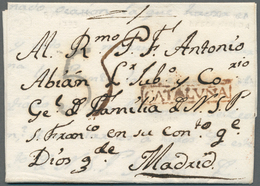 Al R.mo P. F. Antonio
Abián Ex Sub.o y Co.rio
Ge.l d Familia d N. S. P
S. Fran.co en su con.to q.e
Dios g.de
Madrid.
CATALUÑA
5